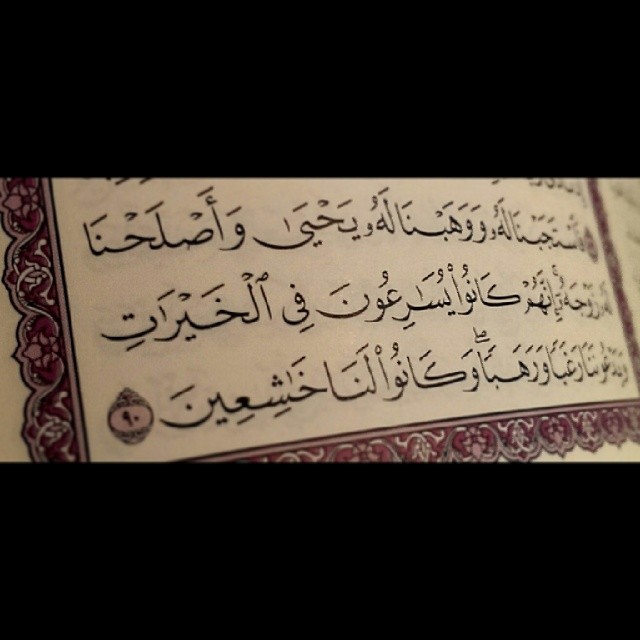 فَٱسْتَجَبْنَا لَهُۥ وَوَهَبْنَا لَهُۥ يَحْيَىٰ وَأَصْلَحْنَا
لَهُۥ زَوْجَهُۥٓ إِنَّهُمْ كَانُوا۟ يُسَٰرِعُونَ فِى ٱلْخَيْرَٰتِ
وَيَدْعُونَنَا رَغَبًا وَرَهَبًا ۖ وَكَانُوا۟ لَنَا خَٰشِعِينَ ٩٠